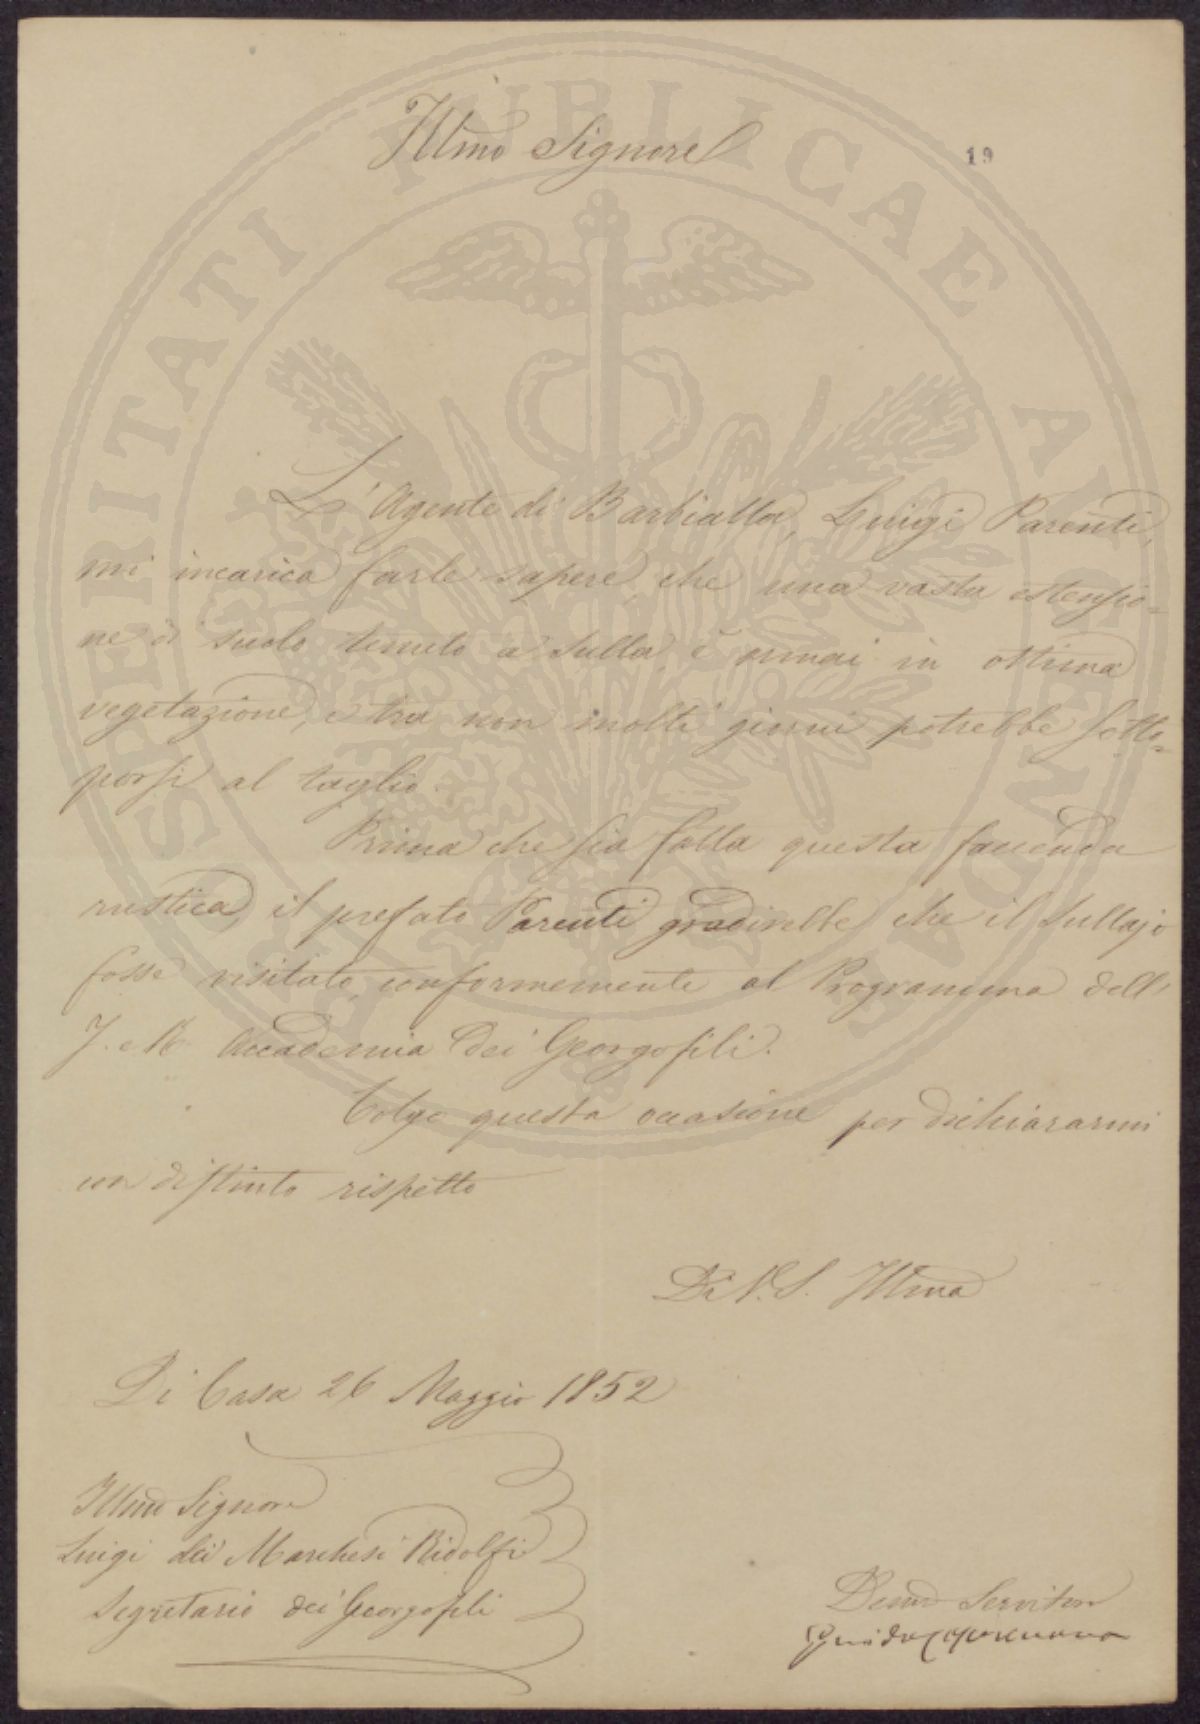 Illmo Signore
19
L'Agente di Barbialla, Luigi Parenti,
mi incarica farle sapere, che una vasta estensio=
ne di suolo tenuto a Sulla è ormai in ottima
vegetazione, e tra non molti giorni potrebbe sotto=
porsi al taglio.
Prima che sia fatta questa faccenda
rustica, il prefato Parenti gradirebbe che il Sullajo
fosse visitato conformemente al Programma dell'
I. e R. Accademia dei Georgofili.
Colgo questa occasione per dichiararmi
con distinto rispetto
Di V. S. Illma
Di Casa 26 Maggio 1852
Illmo Signore
Luigi dei Marchesi Ridolfi
Segretario dei Georgofili
Devmo Servitore
PROSPERITATI PUBLICAE AUGENDAE